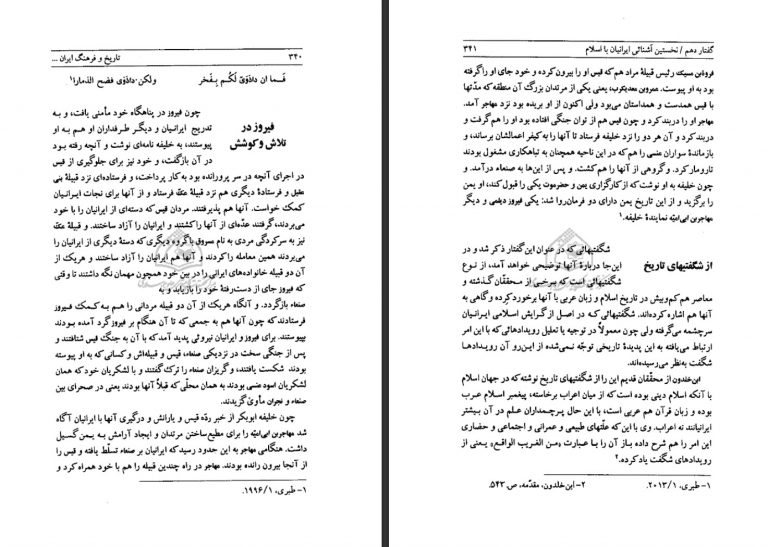 ۳۴۰ تاریخ و فرهنگ ایران ...
فـما ان داذَوَیْ لَکُـم بِـفَخر ولکن داذَوَی فضح الذمارا۱
چون فیروز در پناهگاه خود مأمنی یافت، و بـه
فیروز در
تلاش و کوشش
تدریج ایرانیان و دیگر طـرفداران او هم بـه او
پیوستند، به خلیفه نامه‌ای نوشت و آنچه رفته بود
در آن بازگفت، و خود نیز برای جلوگیری از قیس
در اجرای آنچه در سر پرورانده بود به کار پرداخت، و فرستاده‌ای نزد قبیلهٔ بنی
عقیل و فرستادهٔ دیگری هم نزد قبیلهٔ عک فرستاد و از آنها برای نجات ایرانیان
کمک خواست. آنها هم پذیرفتند. مردان قیس که دسته‌ای از آنها را با خود
می‌بردند، گرفتند عدّه‌ای از آنها را کشتند و ایرانیان را آزاد ساختند. و قبیلهٔ عک
نیز به سرکردگی مردی به نام مسروق با گروه دیگری که دستهٔ دیگری از ایرانیان را
می‌بردند همین معامله را کردند و آنها هم ایرانیان را آزاد ساختند و هریک از
آن دو قبیله خانواده‌های ایرانی را در بین خود همچون مهمان نگه داشتند تا وقتی
که فیروز جای از دست‌رفتهٔ خود را بازیابد و به
صنعاء بازگردد. و آنگاه هریک از آن دو قبیله مردانی را هـم بـه کـمک فـیروز
فرستادند که چون آنها هم به جمعی که تا آن هنگام بر فیروز گرد آمده بـودند
بپیوستند. برای فیروز و ایرانیان نیروئی پدید آمد که با آن به جنگ قیس شتافتند و
پس از جنگی سخت در نزدیکی صنعاء، قیس و قبیله‌اش و کسانی که به او پیوسته
بودند شکست یافتند، و گریزان صنعاء را ترک گفتند و با لشکریان خود که همان
لشکریان اسود عنسی بودند به همان محلّی که قبلاً آنها بودند یعنی در صحرای بین
صنعاء و نجران مأوی گزیدند.
چون خلیفه ابوبکر از خبر ردّه قیس و یارانش و درگیری آنها با ایرانیان آگاه
شد مهاجربن ابی‌امیّه را برای مطیع‌ساختن مرتدان و ایجاد آرامش به یـمن گسیل
داشت. هنگامی مهاجر به این حدود رسید که ایرانیان بر صنعاء تسلّط یافته و قیس را
از آنجا بیرون رانده بودند. مهاجر در راه چندین قبیله را هم با خود همراه کرد و
۱- طبری، ۱/ ۱۹۹۶.
گفتار دهم / نخستین آشنائی ایرانیان با اسلام ۳۴۱
فروة‌بن مسیک رئیس قبیلهٔ مراد هم که قیس او را بیرون کرده و خود جای او را گرفته
بود به او پیوست. عمروبن معدیکرب، یعنی یکی از مرتدان بزرگ آن منطقه که مدّتها
با قیس همدست و همداستان می‌بود ولی اکنون از او بریده بود نزد مهاجر آمد.
مهاجر او را دربند کرد و چون قیس هم از توان جنگی افتاده بود او را هم گرفت و
دربند کرد و آن هر دو را نزد خلیفه فرستاد تا آنها را به کیفر اعمالشان برساند، و
بازماندهٔ سواران عنسی را هم که در این ناحیه همچنان به تباهکاری مشغول بودند
تارومار کرد. و گروهی از آنها را هم کشت. و پس از این‌ها به صنعاء درآمد. و
چون خلیفه به او نوشت که از کارگزاری یمن و حضرموت یکی را قبول کند، او یمن
را برگزید و از این تاریخ یمن دارای دو فرمان‌روا شد: یکی فیروز دیلمی و دیگر
مهاجربن ابی‌امیّه نمایندهٔ خلیفه.۱
شگفتیهائی که در عنوان این گفتار ذکر شد و در
از شگفتیهای تاریخ
این‌جا دربارهٔ آنها توضیحی خواهد آمد، از نـوع
شگفتیهائی است که برخی از محقّقان گذشته و
معاصر هم کم‌وبیش در تاریخ اسلام و زبان عربی با آنها برخورد کرده و گاهی به
آنها هم اشاره کرده‌اند. شگفتیهائی کـه در اصـل از گـرایش اسلامی ایـرانـیان
سرچشمه می‌گرفته ولی چون معمولاً در توجیه یا تعلیل رویدادهائی که با این امر
ارتباط می‌یافته به این پدیدهٔ تاریخی توجّه نمـی‌شده از این‌رو آن رویـدادهـا
شگفت به‌نظر می‌رسیده‌اند.
ابن‌خلدون از محقّقان قدیم این را از شگفتیهای تاریخ نوشته که در جهان اسلام
با آنکه اسلام دینی بوده است که از میان اعراب برخاسته، پیغمبر اسلام عـرب
بوده و زبان قرآن هم عربی است، با این حال پـرچمداران عـلم در آن بـیشتر
ایرانیانند نه اعراب. وی با این که علّتهای طبیعی و عمرانی و اجتماعی و حضاری
این امر را هم شرح داده بـاز آن را بـا عبارت «مـن الغریب الواقـع»، یعنی از
رویدادهای شگفت یاد کرده.۲
۱- طبری، ۱/ ۲۰۱۳. ۲- ابن‌خلدون، مقدّمه، ص ۵۴۳.